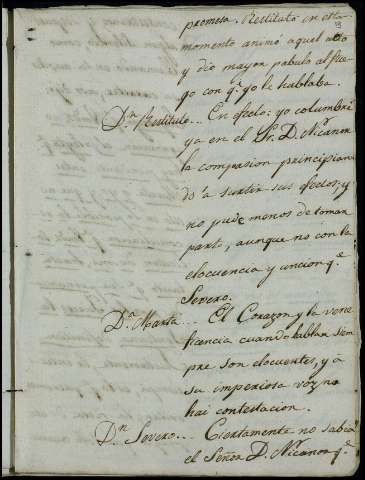 promesa. Restituto en este
3
momento animó aquel acto
y dió mayor pabulo al fue-
go con q.e yo le hablaba.
D.n Restituto... En efecto: yo columbré
ya en el Sr. D. Nicanor
la compasion principian
do á surtir sus efectos; y
no pude menos de tomar
parte, aunque no con la
elocuencia y uncion q.e
Severo.
D.a Marta... El Corazon y la vene
ficencia cuando hablan sem
pre son elocuentes, y á
su imperiosa voz no
hai contestacion.
D.n Severo... Ciertamente no sabia
el Señor D. Nicanor q.e